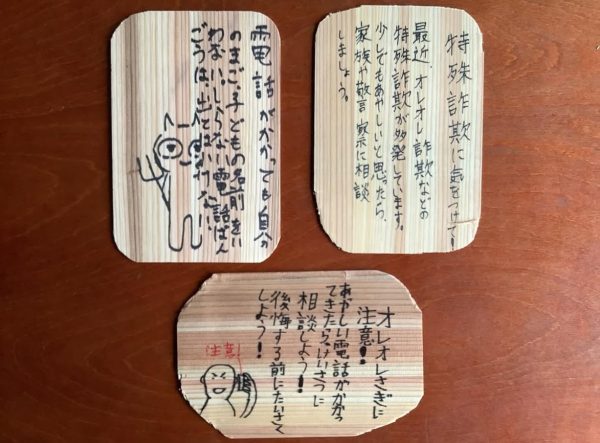 電話がかかっても自分
のまご、子どもの名前をい
わない。しらない電話ばん
ごうは、出ては
特殊詐欺に気をつけて!
最近、オレオレ詐欺などの
特殊詐欺が多発しています。
少しでもあやしいと思ったら、
家族や警察に相談
しましょう。
オレオレさぎに
注意!
あやしい電話がかかっ
てきたら、けいさつに
相談しよう!
後悔する前にたいさく
しよう!
注意!